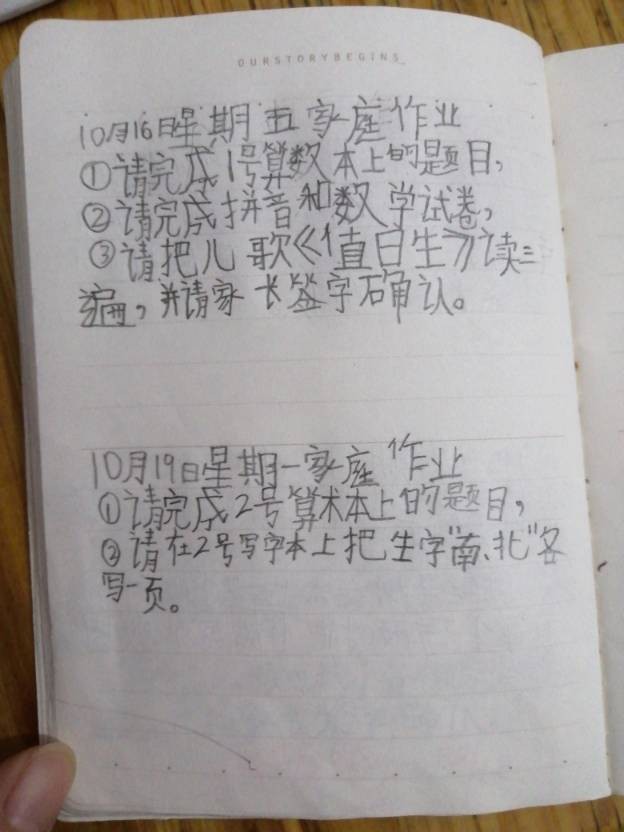 OURSTORYBEGINS_
10月16日星期五家庭作业
①请完成1号算数本上的题目,
②请完成拼音和数学试卷,
③请把儿歌《值日生》读三
遍,并请家长签字确认。
10月19日星期一家座作业
①请完成2号算术本上的题目,
②请在2号写字本上把生字"南、北"各
写一页。